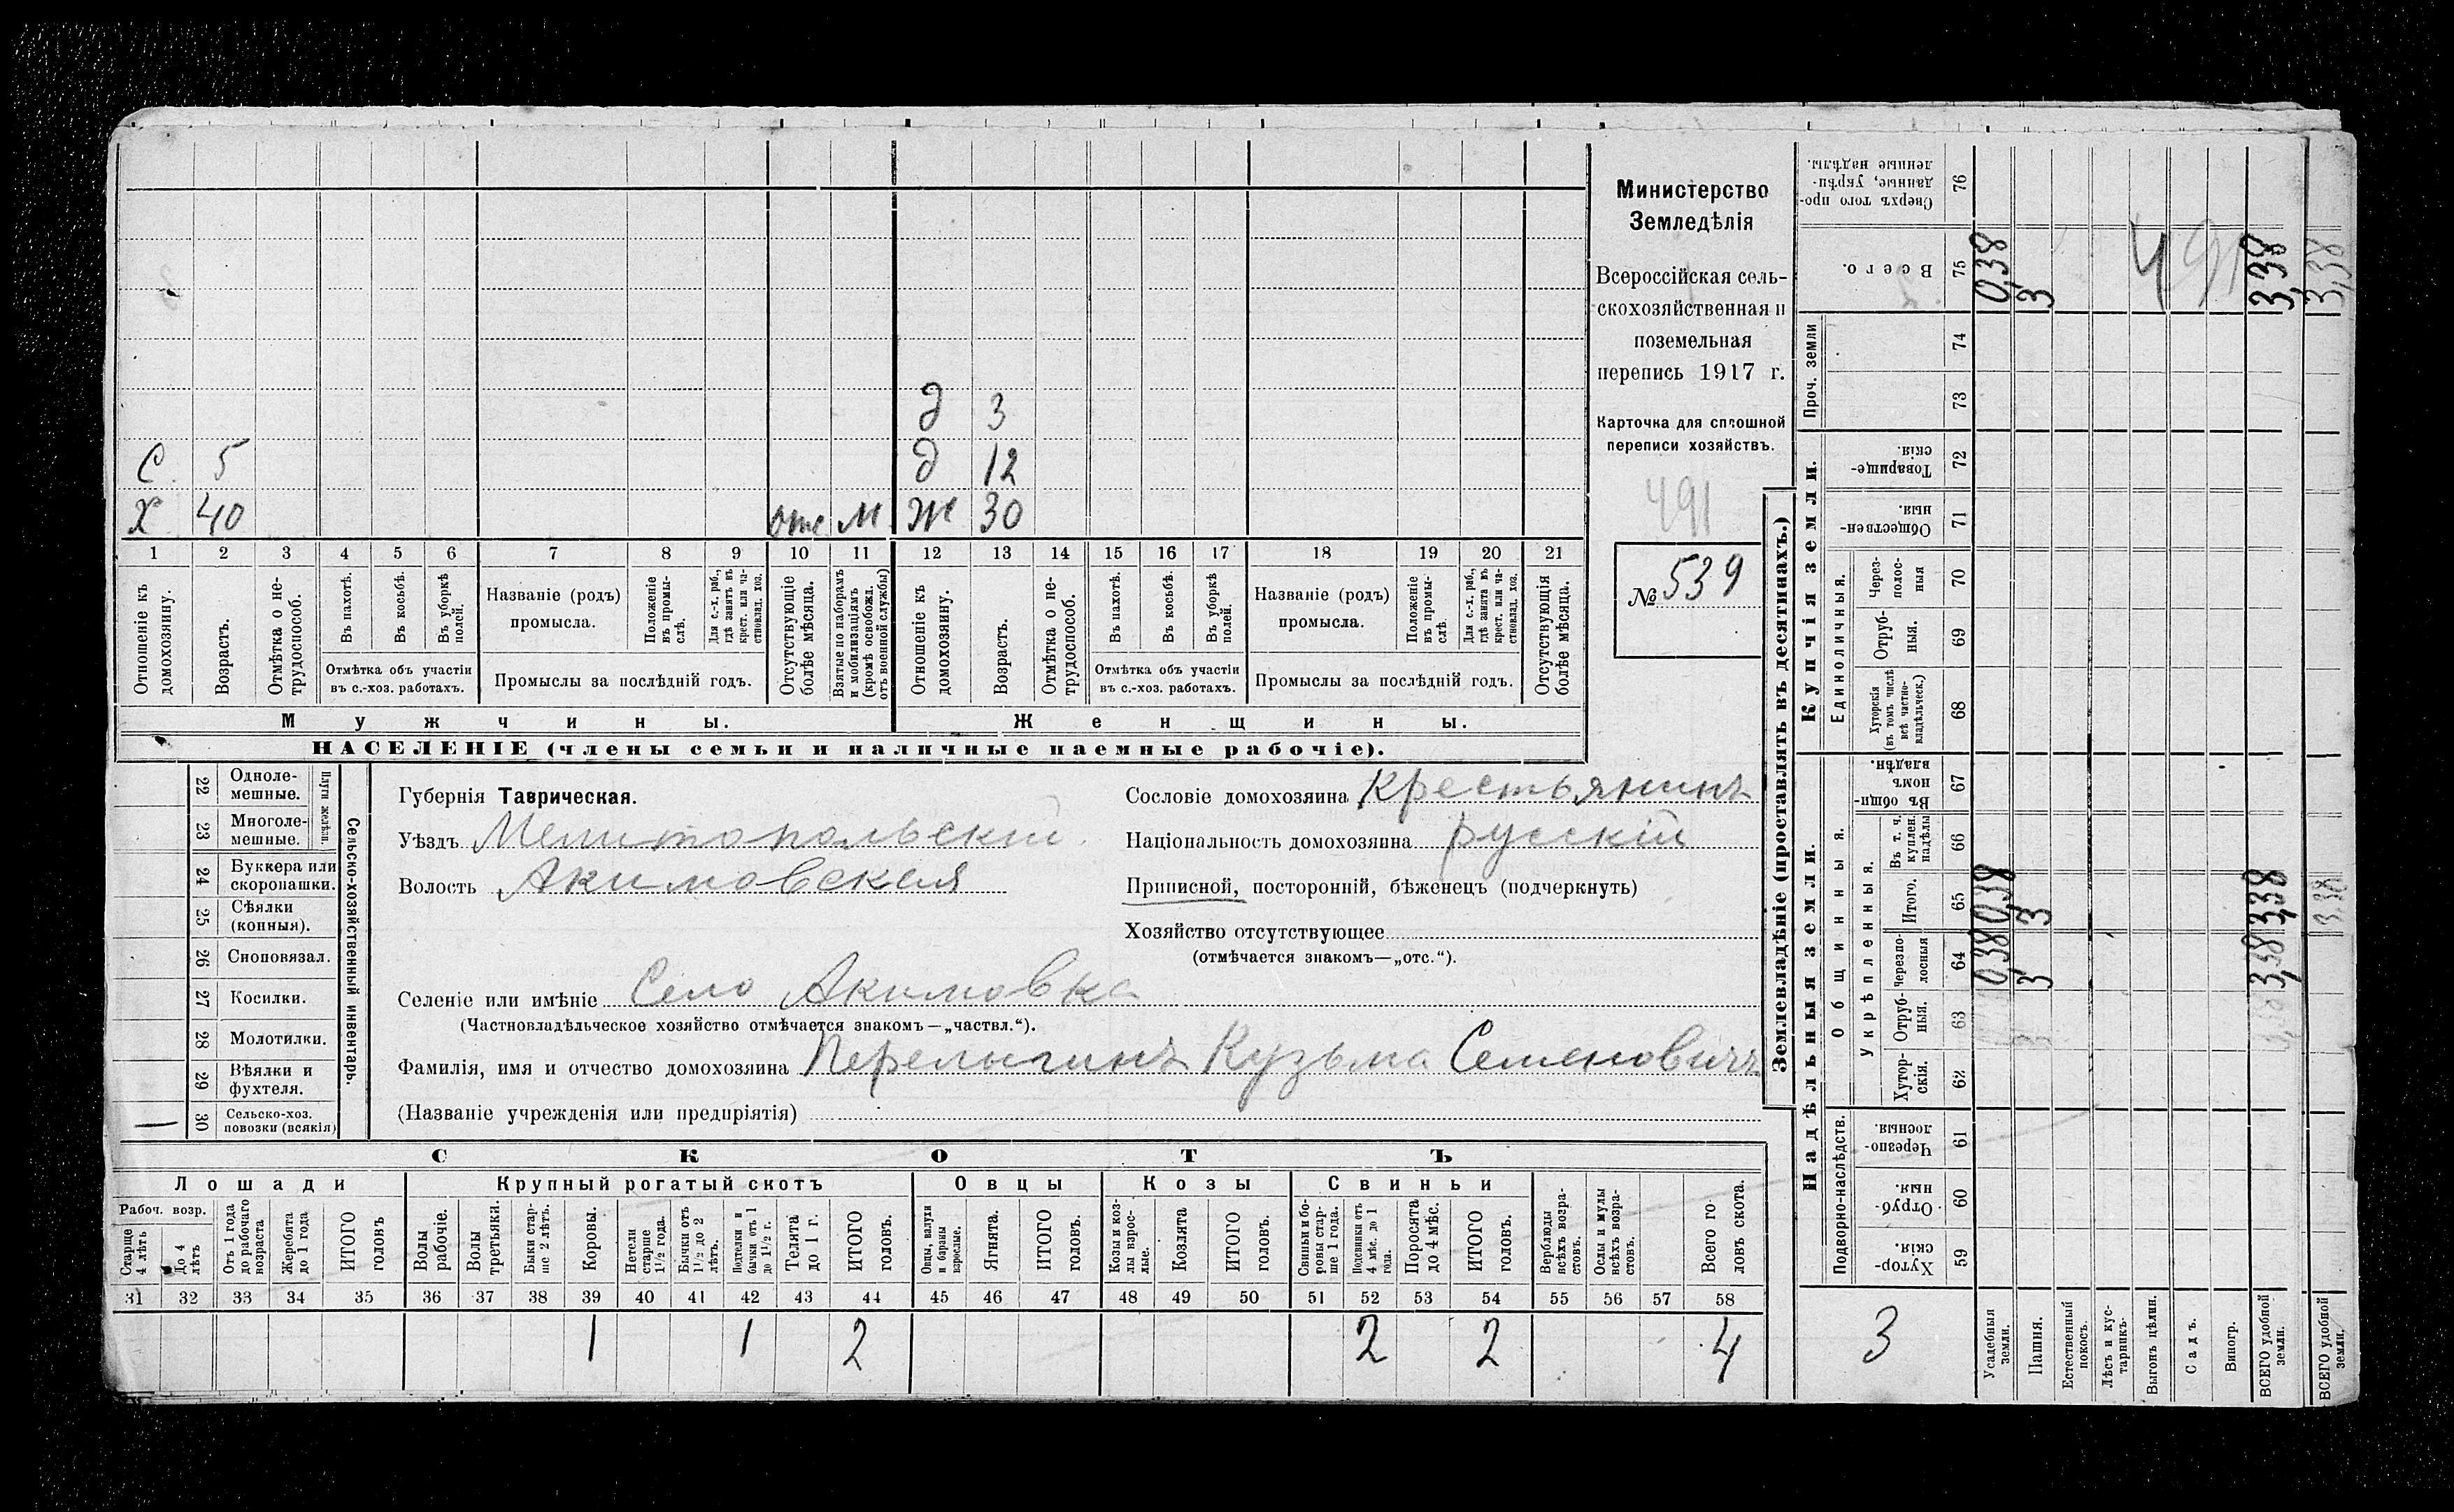 Министерство
Земледѣлія
Всероссійская сель-
скохозяйственная и
поземельная
перепись 1917 г.
Карточка для сплошной
переписи хозяйствъ.
491
№ 539
д 3
С. 5 д 12
Х 40 отс М Ж 30
1 2 3 4 5 6 7 8 9 10 11 12 13 14 15 16 17 18 19 20 21
Отношеніе къ домохозяину.
Возрастъ.
Отмѣтка о не-трудоспособ.
Въ пахотѣ.
Въ косьбѣ.
Въ уборкѣ полей.
Отмѣтка объ участіи въ с.-хоз. работахъ.
Названіе (родъ) промысла.
Положеніе въ промы-слѣ.
Для с.-х. раб., гдѣ занятъ въ крест. или ча-стновлад. хоз.
Промыслы за послѣдній годъ.
Отсутствующіе болѣе мѣсяца.
Взятые по наборамъ и мобилизаціямъ (кромѣ освобожд. отъ военной службы)
Отношеніе къ домохозяину.
Возрастъ.
Отмѣтка о не-трудоспособ.
Въ пахотѣ.
Въ косьбѣ.
Въ уборкѣ полей.
Отмѣтка объ участіи въ с.-хоз. работахъ.
Названіе (родъ) промысла.
Положеніе въ промы-слѣ.
Для с.-х. раб., гдѣ занята въ крест. или ча-стновлад. хоз.
Промыслы за послѣдній годъ.
Отсутствующія болѣе мѣсяца.
Мужчины. Женщины.
НАСЕЛЕНІЕ (члены семьи и наличные наемные рабочіе).
22 Одноле-мешные.
23 Многоле-мешные.
Плуги желѣзн.
24 Буккера или скоропашки.
25 Сѣялки (конныя).
26 Сноповязал.
27 Косилки.
28 Молотилки.
29 Вѣялки и фухтеля.
— 30 Сельско-хоз. повозки (всякія)
Сельско-хозяйственный инвентарь.
Губернія Таврическая.
Уѣздъ Мелитопольскій.
Волость Акимовская
Сословіе домохозяина Крестьянинъ
Національность домохозяина русскій
Приписной, посторонній, бѣженецъ (подчеркнуть)
Хозяйство отсутствующее
(отмѣчается знакомъ—„отс.“).
Селеніе или имѣніе Село Акимовка
(Частновладѣльческое хозяйство отмѣчается знакомъ—„частвл.“).
Фамилія, имя и отчество домохозяина Перелыгинъ Кузьма Семеновичъ
(Названіе учрежденія или предпріятія)
СКОТЪ
Лошади Крупный рогатый скотъ Овцы Козы Свиньи
Рабоч. возр.
Старше 4 лѣтъ
До 4 лѣтъ
Отъ 1 года до рабочаго возраста
Жеребята до 1 года
ИТОГО головъ
Волы рабочіе.
Волы третьяки.
Быки стар-ше 2 лѣтъ.
Коровы.
Нетели старше 1½ года.
Бычки отъ 1½ до 2 лѣтъ.
Подтелки и бычки отъ 1 до 1½ г.
Телята до 1 г.
ИТОГО головъ.
Овцы, валухи и бараны взрослые.
Ягнята.
ИТОГО головъ.
Козы и коз-лы взрос-лые.
Козлята
ИТОГО головъ.
Свиньи и бо-ровы стар-ше 1 года.
Подсвинки отъ 4 мѣс. до 1 года.
Поросята до 4 мѣс.
ИТОГО головъ.
Верблюды всѣхъ возра-стовъ.
Ослы и мулы всѣхъ возра-стовъ.
Всего го-ловъ скота.
31 32 33 34 35 36 37 38 39 40 41 42 43 44 45 46 47 48 49 50 51 52 53 54 55 56 57 58
1 1 2 2 2 4
Землевладѣніе (проставлять въ десятинахъ.)
Надѣльныя земли. Купчія земли. Проч. земли
Подворно-наслѣдств.
Общинныя.
Укрѣпленныя.
Единоличныя.
Хутор-скія. 59
Отруб-ныя. 60
Черезпо-лосныя. 61
Хутор-скія. 62
Отруб-ныя. 63
Черезпо-лосныя 64 0,38 3 3,38
Итого. 65 0,38 3 3,38 3,38
Въ т. ч. куплен. надѣлы 66
Въ общин-номъ владѣн. 67
Хуторскія (въ томъ числѣ всѣ частно-владѣльческ.) 68
Отруб-ныя. 69
Через-полос-ныя 70
Обществен-ныя. 71
Товарище-скія. 72
73
74
Всего. 75 0,38 3 3,38 3,38
491
Сверхъ того про-данные, укрѣп-ленные надѣлы. 76
3
Усадебныя земли.
Пашня.
Естественный покосъ.
Лѣсъ и кус-тарникъ.
Выгонъ цѣлин.
Садъ.
Виногр.
ВСЕГО удобной земли.
ВСЕГО удобной земли.